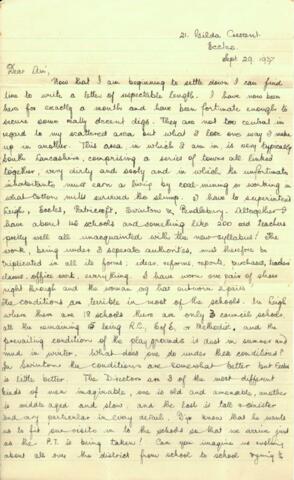 21. Gilda Crescent
Eccles.
Sept 29. 1937
Dear Ain,
Now that I am beginning to settle down I can find
time to write a letter of respectable length. I have now been
here for exactly a month and have been fortunate enough to
secure some really decent digs. They are not too central in
regard to my scattered area but what I lose one way I make
up in another. This area in which I am in is very typically
South Lancashire, comprising a series of towns all linked
together, very dirty and sooty and in which the unfortunate
inhabitants must earn a living by coal-mining or working in
what cotton mills survived the slump. I have to superintend
Leigh, Eccles, Patricroft, Swinton & Pendlebury. Altogether I
have about 45 schools and something like 200 odd teachers
pretty well all unacquainted with the new syllabus! The
work, being under 3 separate authorities, must therefore be
triplicated in all its forms; ideas, reforms, reports, purchases, teachers
classes, office work, everything. I have worn one pair of shoes
right through and the woman has outworn 2 pairs.
The conditions are terrible in most of the schools. In Leigh
where there are 18 schools there are only 3 council schools,
all the remaining 15 being R.C., C of E, or Methodist, and the
prevailing condition of the play grounds is dust in summer and
mud in winter. What does one do under these conditions?
In Swinton the conditions are somewhat better but Eccles
is little better. The Directors are 3 of the most different
kinds of men imaginable, one is old and amenable, another
is middle aged and slow, and the last is tall & sinister
and very particular in every detail. D'you know that he wants
us to fit our visits in to the schools so that we arrive just
as the P.T. is being taken! Can you imagine us rushing
about all over the district from school to school trying to